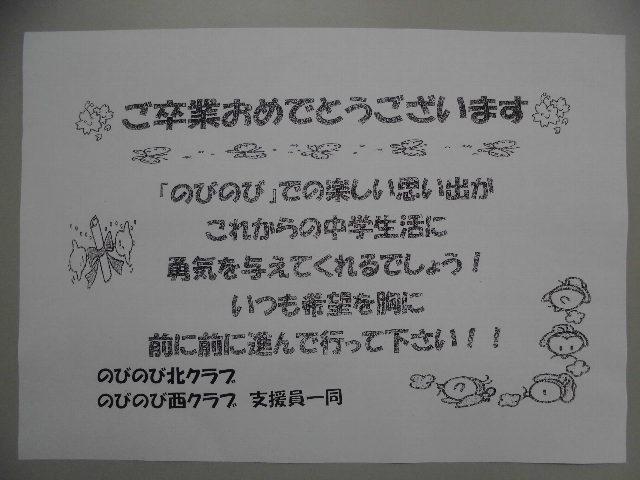 ご卒業おめでとうございます
「のびのび」での楽しい思い出が
これからの中学生活に
勇気を与えてくれるでしょう！
いつも希望を胸に
前に前に進んで行って下さい！！
のびのび北クラブ
のびのび西クラブ 支援員一同